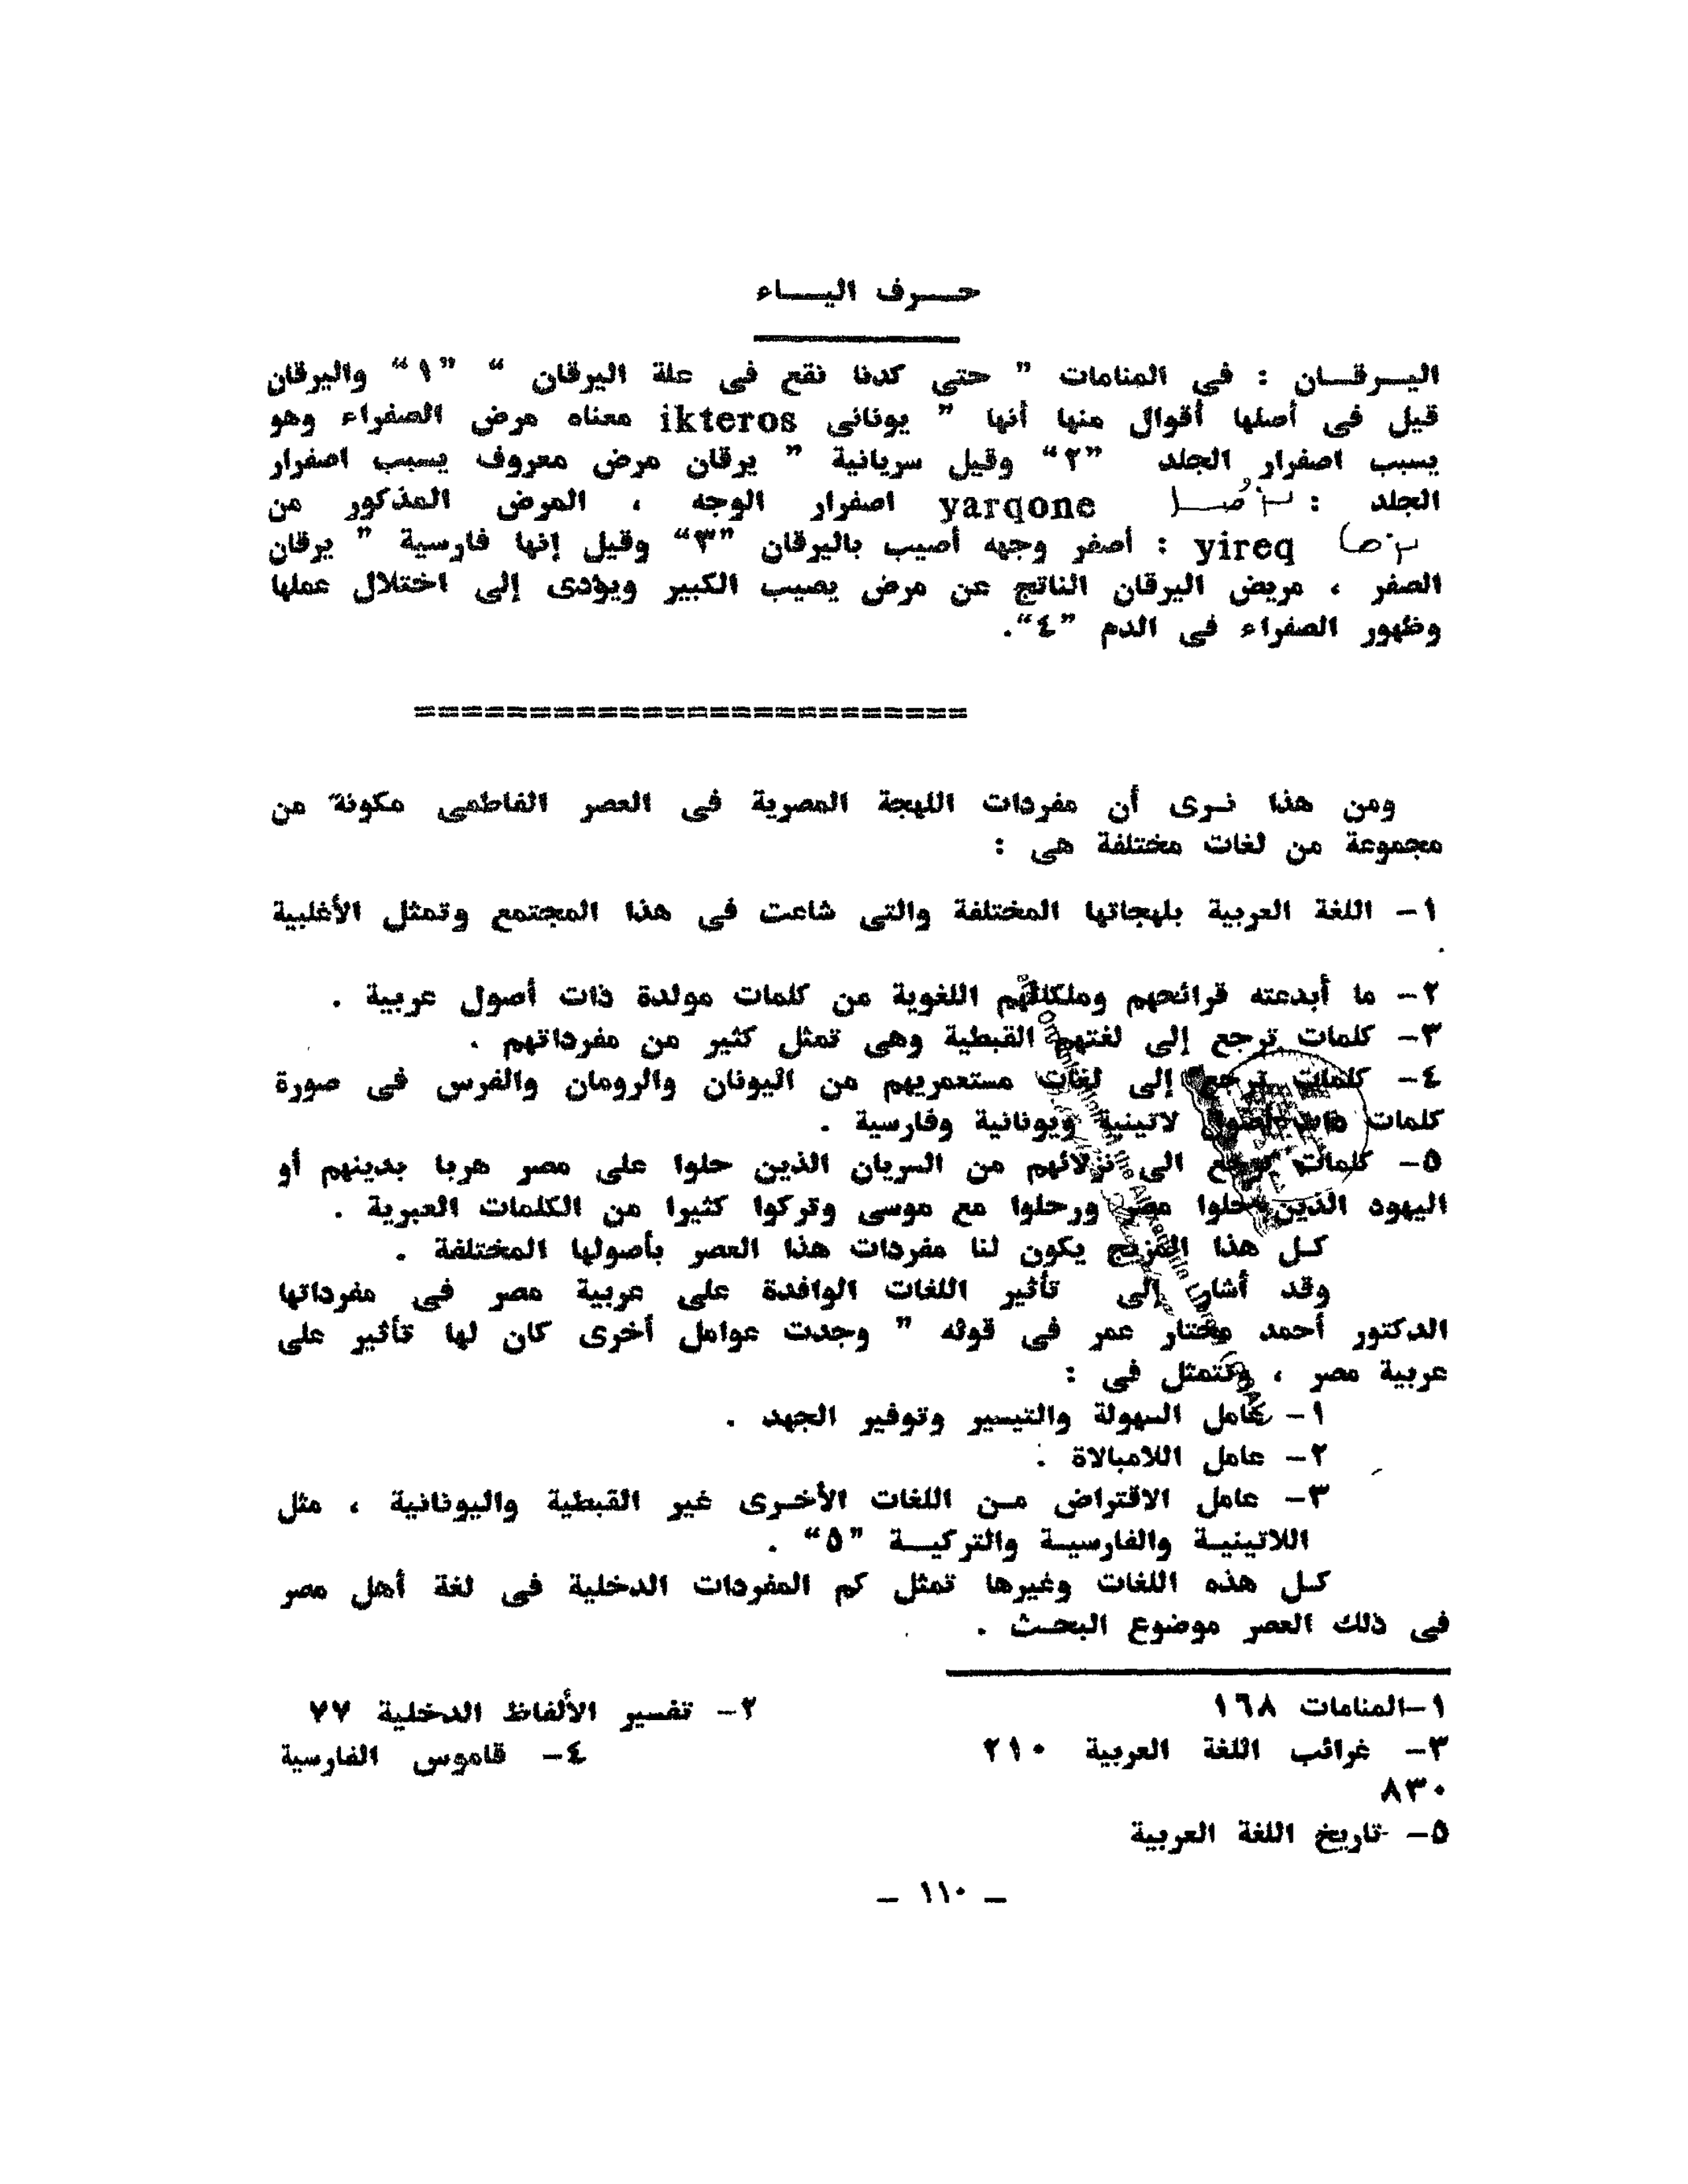 حـــرف اليـــاء
اليـــرقـــان : فى المنامات " حتى كدنا نقع فى علة اليرقان " "١" واليرقان
قيل فى أصلها أقوال منها أنها " يونانى ikteros معناه مرض الصفراء وهو
يسبب اصفرار الجلد "٢" وقيل سريانية " يرقان مرض معروف يسبب اصفرار
الجلد : yarqone اصفرار الوجه ، المرض المذكور من
yireq : أصفر وجهه أصيب باليرقان "٣" وقيل إنها فارسية " يرقان
الصفر ، مريض اليرقان الناتج عن مرض يصيب الكبير ويؤدى إلى اختلال عملها
وظهور الصفراء فى الدم "٤".
=========================
ومن هذا نـرى أن مفردات اللهجة المصرية فى العصر الفاطمى مكونة من
مجموعة من لغات مختلفة هى :
١- اللغة العربية بلهجاتها المختلفة والتى شاعت فى هذا المجتمع وتمثل الأغلبية
.
٢- ما أبدعته قرائحهم وملكاتهم اللغوية من كلمات مولدة ذات أصول عربية .
٣- كلمات ترجع إلى لغتهم القبطية وهى تمثل كثير من مفرداتهم .
٤- كلمات ترجع إلى لغات مستعمريهم من اليونان والرومان والفرس فى صورة
كلمات ذات أصول لاتينية ويونانية وفارسية .
٥- كلمات ترجع الى نزلائهم من السريان الذين حلوا على مصر هربا بدينهم أو
اليهود الذين حلوا مصر ورحلوا مع موسى وتركوا كثيرا من الكلمات العبرية .
كـل هذا المزيج يكون لنا مفردات هذا العصر بأصولها المختلفة .
وقد أشار إلى تأثير اللغات الوافدة على عربية مصر فى مفرداتها
الدكتور أحمد مختار عمر فى قوله " وجدت عوامل أخرى كان لها تأثير على
عربية مصر ، وتتمثل فى :
١- عامل السهولة والتيسير وتوفير الجهد .
٢- عامل اللامبالاة .
٣- عامل الاقتراض مـن اللغات الأخـرى غير القبطية واليونانية ، مثل
اللاتينيـة والفارسيـة والتركيـــة "٥" .
كـل هذه اللغات وغيرها تمثل كم المفردات الدخلية فى لغة أهل مصر
فى ذلك العصر موضوع البحـث .
١-المنامات ١٦٨ ٢- تفسير الألفاظ الدخلية ٧٧
٣- غرائب اللغة العربية ٢١٠ ٤- قاموس الفارسية
٨٣٠
٥- تاريخ اللغة العربية
- ١١٠ -